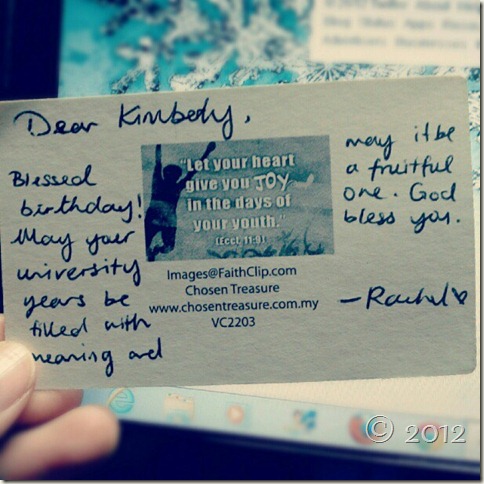 Dear Kimberly,
Blessed
birthday!
May your
university
years be
filled with
meaning and
may it be
a fruitful
one. God
bless you.
—Rachel♥
"Let your heart
give you JOY
in the days of
your youth."
(Eccl. 11:9)
Images@FaithClip.com
Chosen Treasure
www.chosentreasure.com.my
VC2203
© 2012